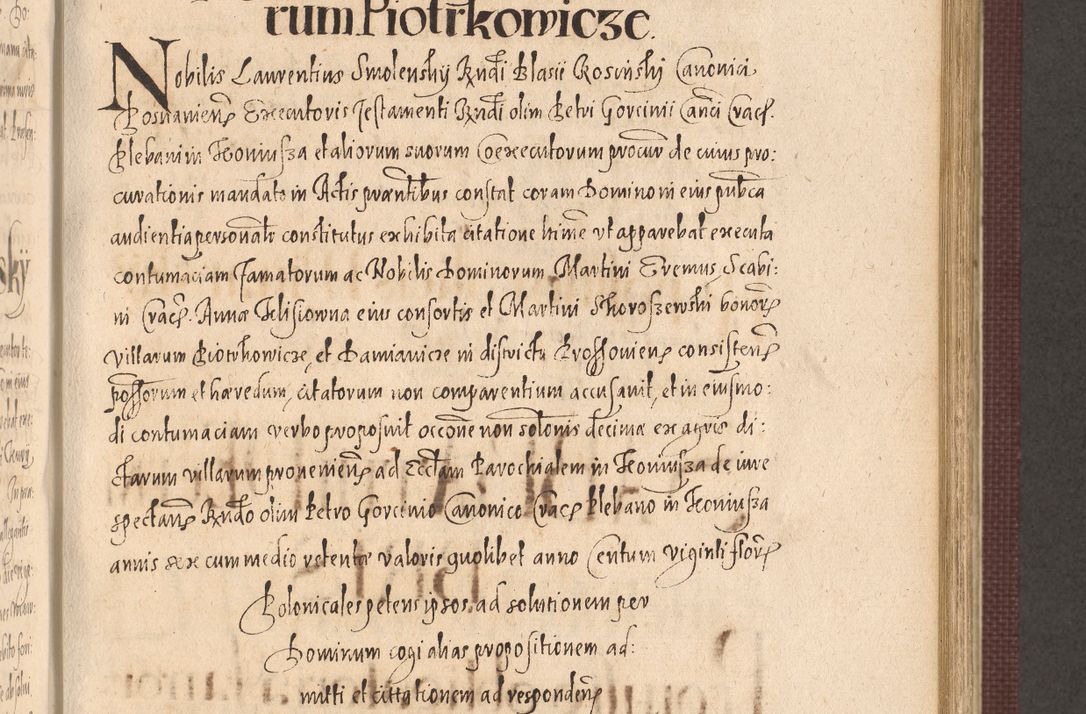 rum Piotrkowicze.
Nobilis Laurentius Smolenskij Rndi Blasii Rosinskj Canonici
Posnanien Executoris Testamenti Rndi olim Petri Gorcinii Canci Crac.
Plebani in Koniusza et aliorum suorum Coexecutorum procur de cuius pro:
curationis mandato in Actis prntibus constat coram Domino in eius pubca
audientia personalr constitutus exhibita citatione hinne ut apparebat executa
contumaciam Famatorum ac Nobilis Dominorum Martini Eremus Scabi:
ni Crac. Annæ Felisiowna eius consortis et Martini Skoroszewski bonor
villarum Piotrkowicze, et Damianicze in districtu Prossovien consisten
possorum et hæredum, citatorum non comparentium accusavit, et in eiusmo:
di contumaciam verbo proposuit occone non solonis decimæ ex agris di:
ctarum villarum provenien ad Ecclam Parochialem in Koniusza de iure
spectan Rndo olim Petro Gorcinio Canonico Crac Plebano in Koniusza
annis sex cum medio retentæ valoris quolibet anno Centum viginti flor
Polonicales petens ipsos ad solutionem per
Dominum cogi alias propositionem ad:
mitti et cittationem ad responden